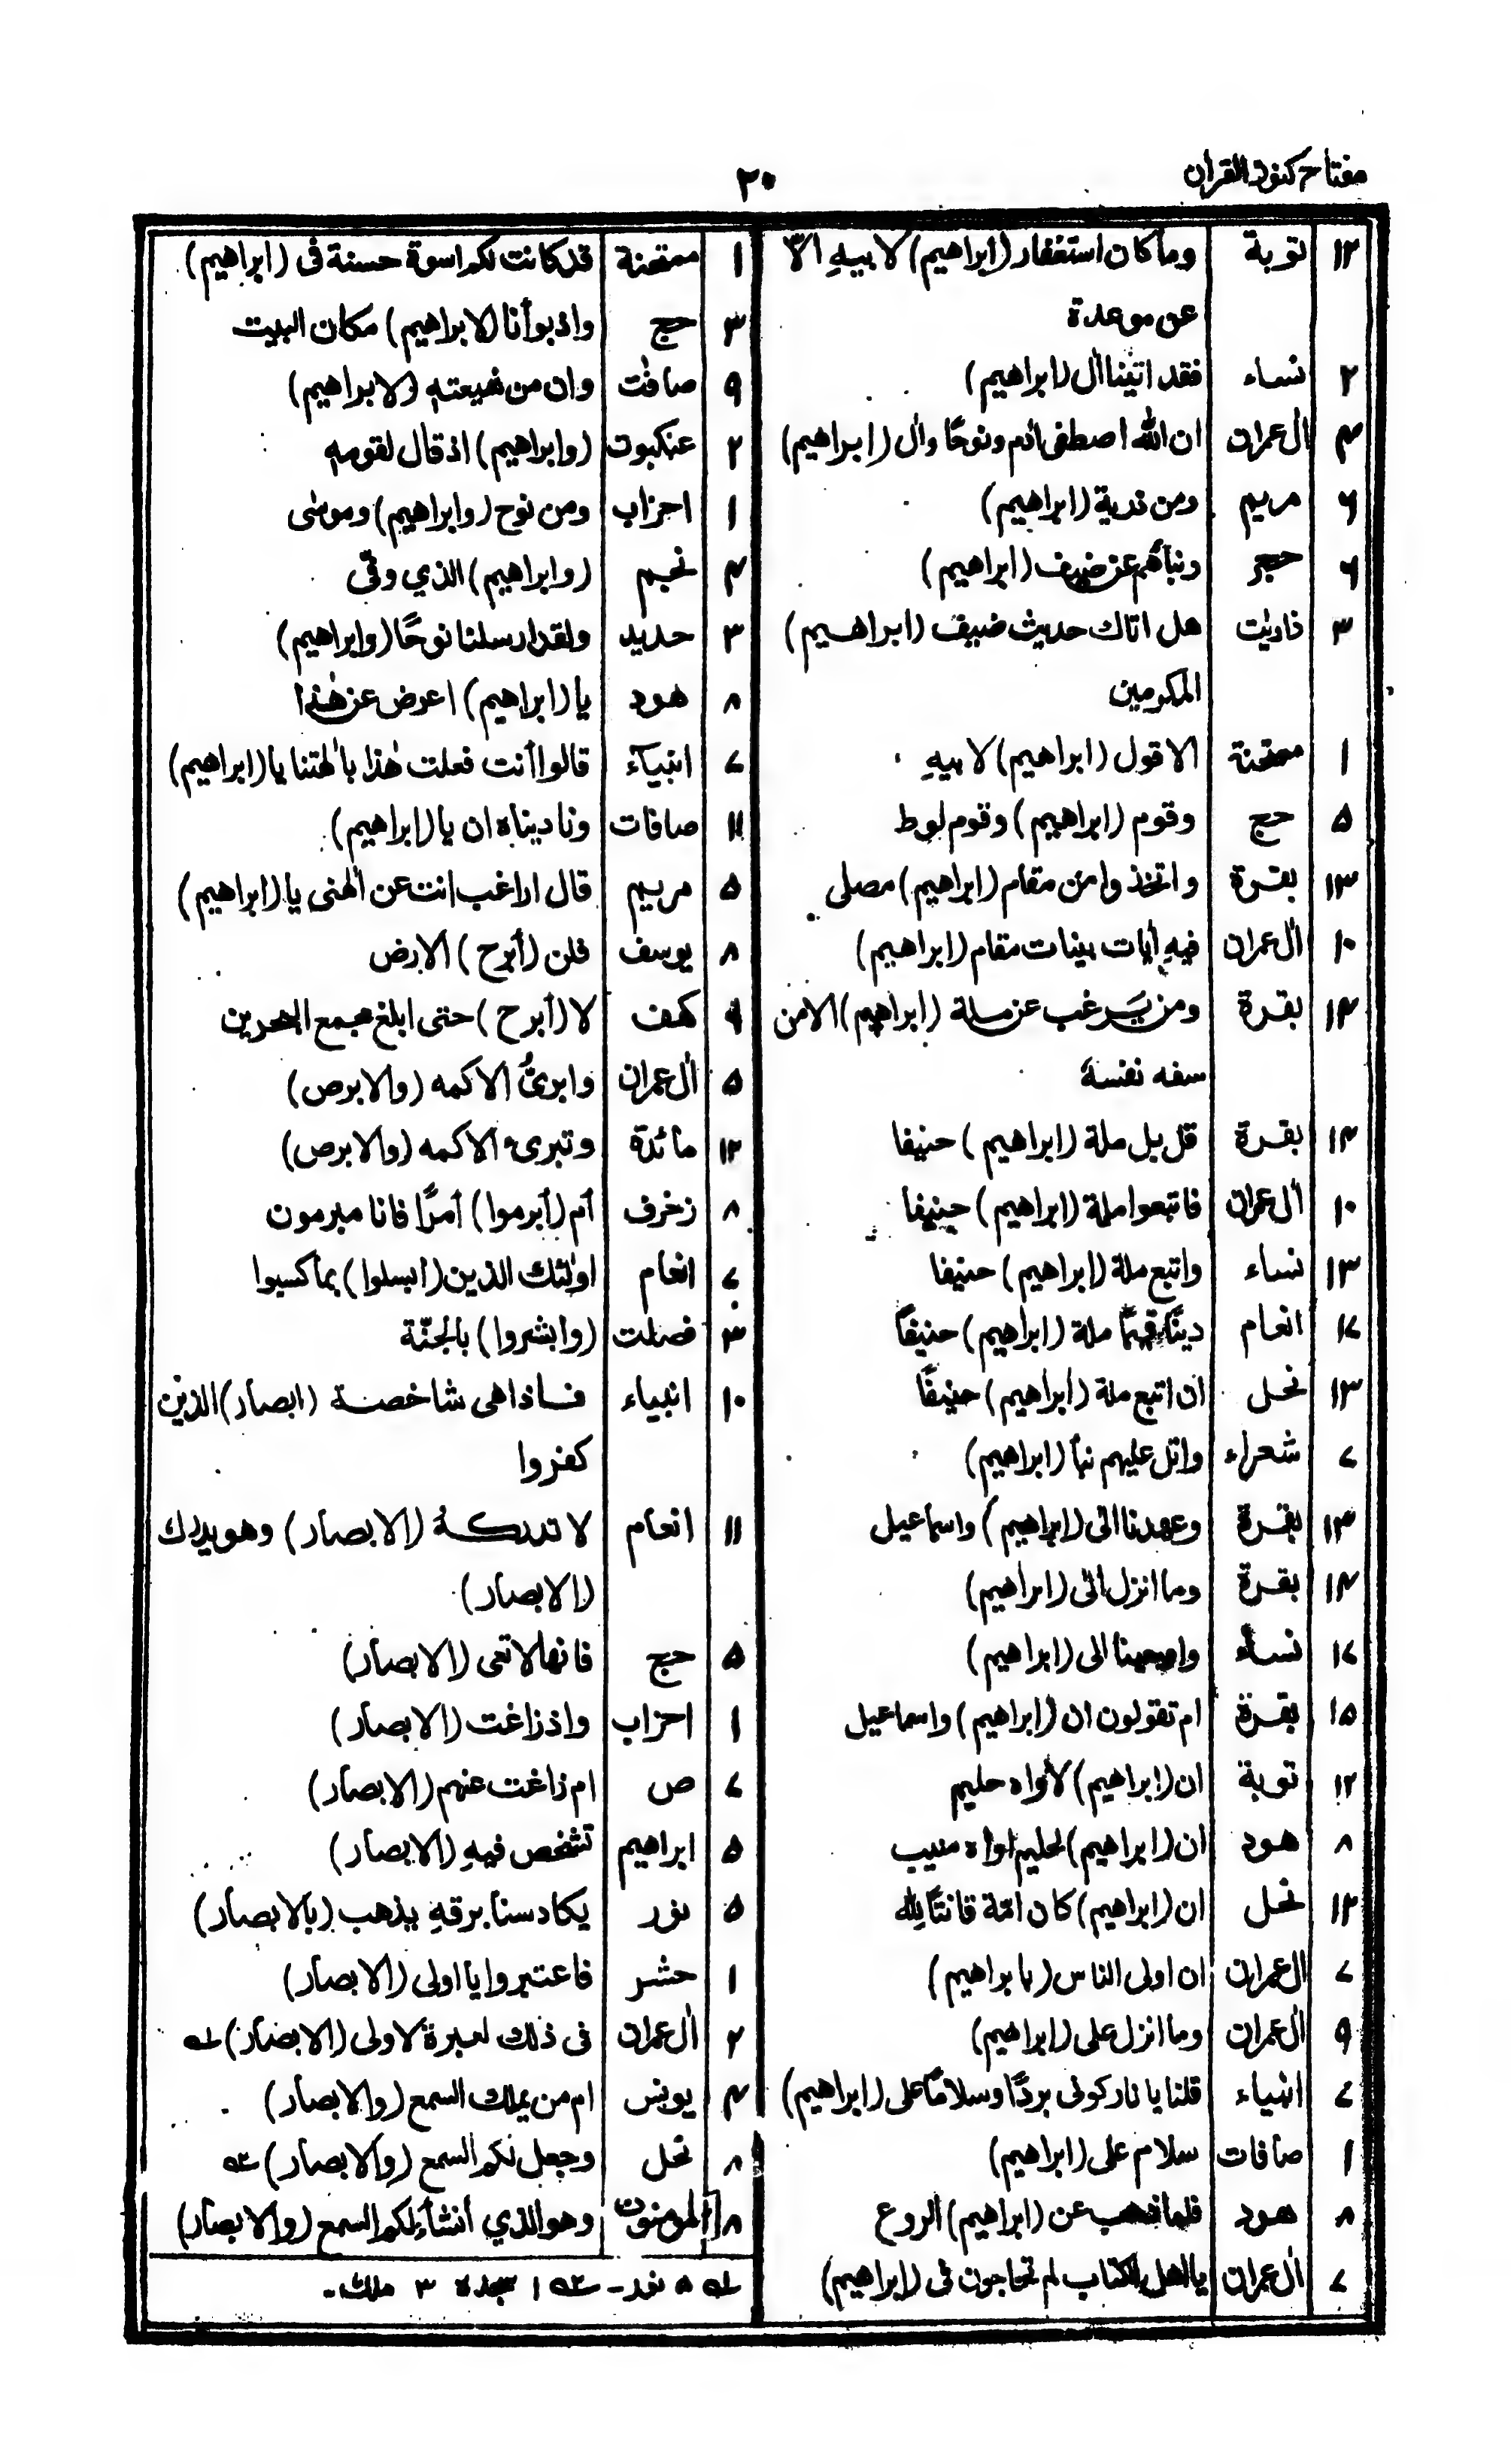 مفتاح كنوز القرآن
۲۰
۱۳ توبة وما كان استغفار (ابراهيم) لابيهِ الّا
عن موعدة
۲ نساء فقد اتيناآل (ابراهيم)
۴ آل عمران ان الله اصطفى اٰدم ونوحًا واٰل (ابراهيم)
۶ مريم ومن ذرية (ابراهيم)
۶ حجر ونبأهم عن ضيف (ابراهيم)
۳ ذاريٰت هل اتاك حديث ضيف (ابراهيم)
المكرمين
۱ ممتحنة الا قول (ابراهيم) لابيهِ
۵ حج وقوم (ابراهيم) وقوم لوط
۱۳ بقرة واتخذوا من مقام (ابراهيم) مصلى
۱۰ اٰل عمران فيهِ اٰيات بينات مقام (ابراهيم)
۱۴ بقرة ومن يَرغب عن ملة (ابراهيم) الا من
سفه نفسهٗ
۱۴ بقرة قل بل ملة (ابراهيم) حنيفا
۱۰ اٰل عمران فاتبعوا ملة (ابراهيم) حنيفا
۱۳ نساء واتبع ملة (ابراهيم) حنيفا
۱۷ انعام دينًا قيمًا ملة (ابراهيم) حنيفًا
۱۳ نحل ان اتبع ملة (ابراهيم) حنيفًا
۷ شعراء واتل عليهم نبأ (ابراهيم)
۱۳ بقرة وعهدنا الى (ابراهيم) واسماعيل
۱۴ بقرة وما انزل الى (ابراهيم)
۱۷ نساء واوحينا الى (ابراهيم)
۱۵ بقرة ام تقولون ان (ابراهيم) واسماعيل
۱۲ توبة ان (ابراهيم) لأواه حليم
۸ هود ان (ابراهيم) لحليم اواه منيب
۱۳ نحل ان (ابراهيم) كان امّة قانتًا لِله
۷ اٰل عمران ان اولى الناس (بابراهيم)
۹ اٰل عمران وما انزل على (ابراهيم)
۷ انبياء قلنا يا نار كونى بردًا وسلامًا على (ابراهيم)
۱ صافات سلام على (ابراهيم)
۸ هود فلما ذهب عن (ابراهيم) الروع
۷ اٰل عمران يا اهل الكتاب لم تحاجون فى (ابراهيم)
۱ ممتحنة قد كانت لكم اسوة حسنة فى (ابراهيم)
۳ حج واذ بوأنا (لابراهيم) مكان البيت
۹ صافٰت وان من شيعتهِ (لابراهيم)
۲ عنكبوت (وابراهيم) اذ قال لقومهِ
۱ احزاب ومن نوح (وابراهيم) وموسٰى
۴ نجم (وابراهيم) الذي وفّى
۳ حديد ولقد ارسلنا نوحًا (وابراهيم)
۸ هود يا (ابراهيم) اعرض عن هٰذا
۷ انبيآء قالوا أأنت فعلت هٰذا باٰلهتنا يا (ابراهيم)
۱۱ صافات وناديناه ان يا (ابراهيم)
۵ مريم قال اراغب انت عن اٰلهتى يا (ابراهيم)
۸ يوسف فلن (أبرح) الارض
۹ كهف لا (أبرح) حتى ابلغ مجمع البحرين
۵ اٰل عمران وابرئُ الاكمه (والابرص)
۱۲ مائدة وتبرىء الاكمه (والابرص)
۸ زخرف أم (أبرموا) أمرًا فانا مبرمون
۷ انعام اولٰئك الذين (ابسلوا) بما كسبوا
۳ فصلت (وابشروا) بالجنّة
۱۰ انبياء فاذا هى شاخصة (ابصار) الذين
كفروا
۱۱ انعام لا تدركهُ (الابصار) وهو يدرك
(الابصار)
۵ حج فانها لا تعمى (الابصار)
۱ احزاب واذ زاغت (الابصار)
۷ ص ام زاغت عنهم (الابصار)
۵ ابراهيم تشخص فيهِ (الابصار)
۵ نور يكاد سنا برقهِ يذهب (بالابصار)
۱ حشر فاعتبروا يا اولى (الابصار)
۲ اٰل عمران فى ذٰلك لعبرة لاولى (الابصار) ؎۱
۴ يونس ام من يملك السمع (والابصار)
۸ نحل وجعل لكم السمع (والابصار) ؎۲
۸ المومنون وهو الذي أنشأ لكم السمع (والابصار)
؎۱ ۵ نور ـ ؎۲ ۱ سجدة ۳ ملك ـ